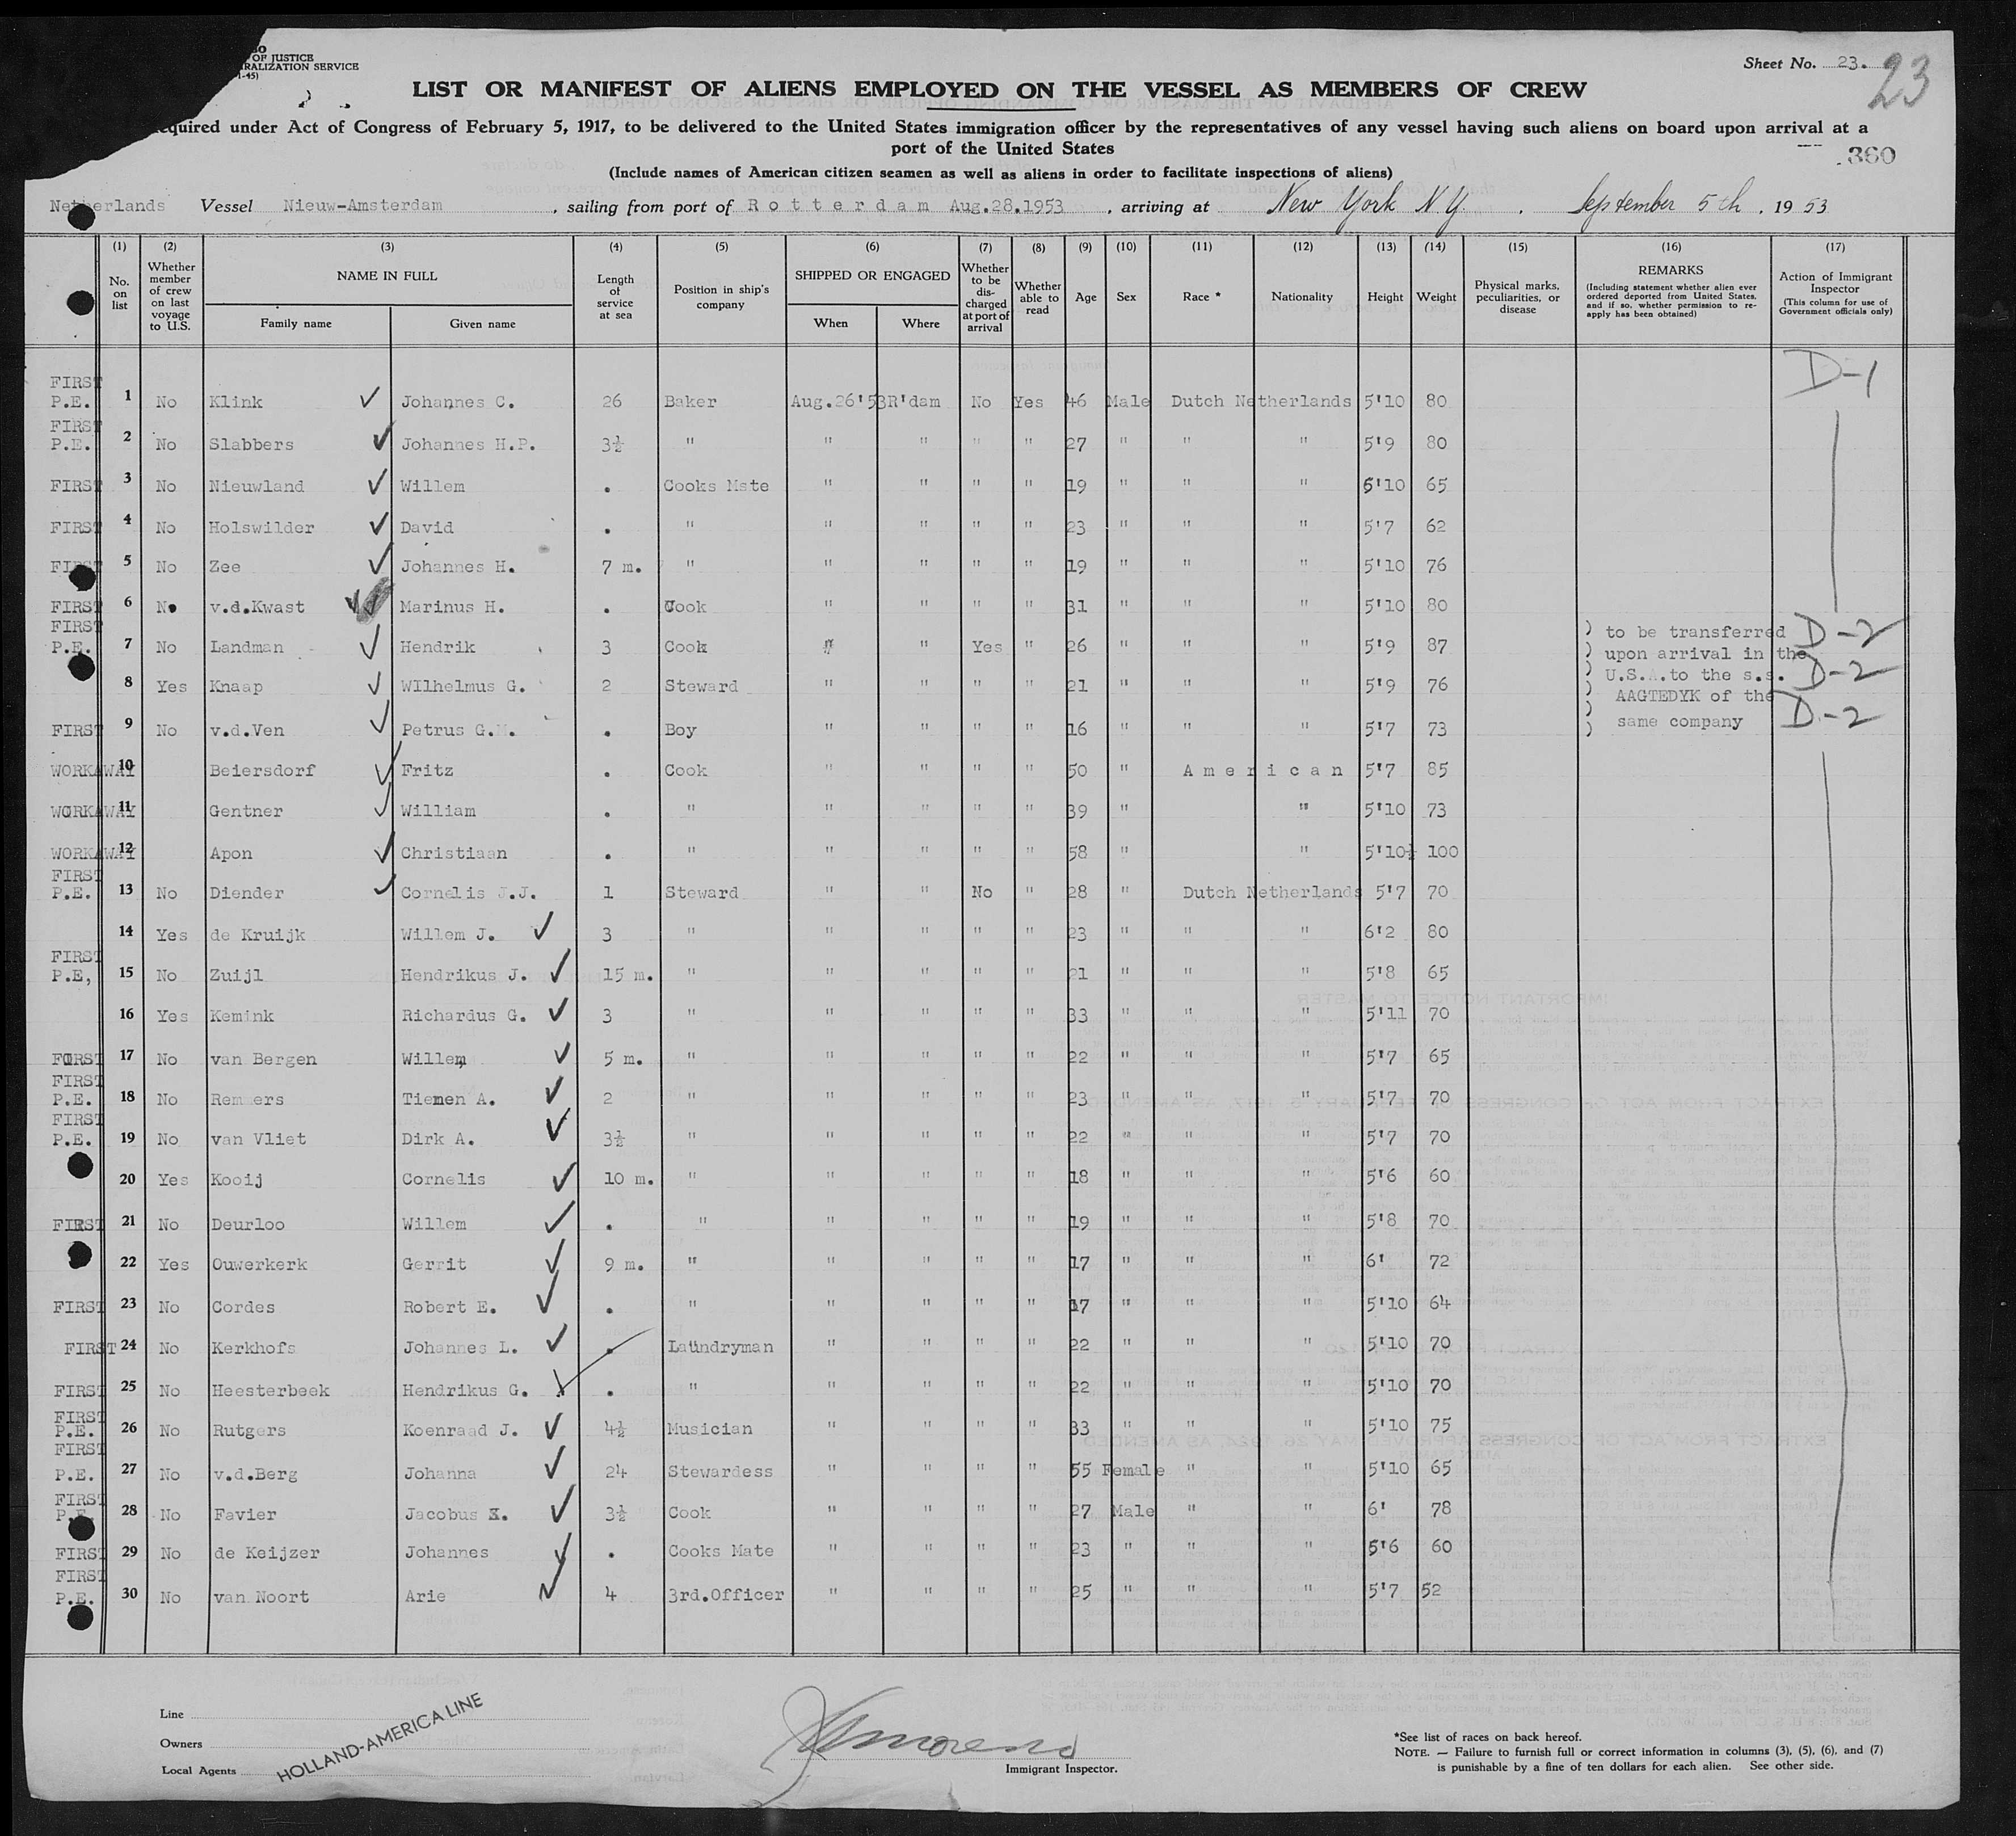 OF JUSTICE
RALIZATION SERVICE
-45)
Sheet No. 23.
23
LIST OR MANIFEST OF ALIENS EMPLOYED ON THE VESSEL AS MEMBERS OF CREW
equired under Act of Congress of February 5, 1917, to be delivered to the United States immigration officer by the representatives of any vessel having such aliens on board upon arrival at a
port of the United States
360
(Include names of American citizen seamen as well as aliens in order to facilitate inspections of aliens)
Netherlands Vessel Nieuw-Amsterdam , sailing from port of Rotterdam Aug.28.1953 , arriving at New York N.Y. , September 5th , 1953
(1) (2) (3) (4) (5) (6) (7) (8) (9) (10) (11) (12) (13) (14) (15) (16) (17)
No. on list
Whether member of crew on last voyage to U.S.
NAME IN FULL
Family name Given name
Length of service at sea
Position in ship's company
SHIPPED OR ENGAGED
When Where
Whether to be discharged at port of arrival
Whether able to read
Age Sex Race * Nationality Height Weight
Physical marks, peculiarities, or disease
REMARKS
(Including statement whether alien ever ordered deported from United States, and if so, whether permission to re-apply has been obtained)
Action of Immigrant Inspector
(This column for use of Government officials only)
FIRST P.E. 1 No Klink Johannes C. 26 Baker Aug.26'53 R'dam No Yes 46 Male Dutch Netherlands 5'10 80 D-1
FIRST P.E. 2 No Slabbers Johannes H.P. 3½ " " " " " 27 " " " 5'9 80
FIRST 3 No Nieuwland Willem . Cooks Mste " " " " 19 " " " 5'10 65
FIRST 4 No Holswilder David . " " " " " 23 " " " 5'7 62
FIRST 5 No Zee Johannes H. 7 m. " " " " " 19 " " " 5'10 76
FIRST 6 No v.d.Kwast Marinus H. . Cook " " " " 31 " " " 5'10 80
FIRST P.E. 7 No Landman Hendrik 3 Cook " " Yes " 26 " " " 5'9 87 ) to be transferred D-2
8 Yes Knaap WIlhelmus G. 2 Steward " " " " 21 " " " 5'9 76 ) upon arrival in the
) U.S.A.to the s.s. D-2
) AAGTEDYK of the
FIRST 9 No v.d.Ven Petrus G.M. . Boy " " " " 16 " " " 5'7 73 ) same company D-2
WORKAWAY 10 Beiersdorf Fritz . Cook " " " " 50 " American 5'7 85
WORKAWAY 11 Gentner William . " " " " " 39 " " 5'10 73
WORKAWAY 12 Apon Christiaan . " " " " " 58 " " 5'10½ 100
FIRST P.E. 13 No Diender Cornelis J.J. 1 Steward " " No " 28 " Dutch Netherlands 5'7 70
14 Yes de Kruijk Willem J. 3 " " " " " 23 " " " 6'2 80
FIRST P.E, 15 No Zuijl Hendrikus J. 15 m. " " " " " 21 " " " 5'8 65
16 Yes Kemink Richardus G. 3 " " " " " 33 " " " 5'11 70
FIRST 17 No van Bergen Willem 5 m. " " " " " 22 " " " 5'7 65
FIRST P.E. 18 No Remmers Tiemen A. 2 " " " " " 23 " " " 5'7 70
FIRST P.E. 19 No van Vliet Dirk A. 3½ " " " " " 22 " " " 5'7 70
20 Yes Kooij Cornelis 10 m. " " " " " 18 " " " 5'6 60
FIRST 21 No Deurloo Willem . " " " " " 19 " " " 5'8 70
22 Yes Ouwerkerk Gerrit 9 m. " " " " " 17 " " " 6' 72
FIRST 23 No Cordes Robert E. . " " " " " 17 " " " 5'10 64
FIRST 24 No Kerkhofs Johannes L. . Laundryman " " " " 22 " " " 5'10 70
FIRST 25 No Heesterbeek Hendrikus G. . " " " " " 22 " " " 5'10 70
FIRST P.E. 26 No Rutgers Koenraad J. 4½ Musician " " " " 33 " " " 5'10 75
FIRST P.E. 27 No v.d.Berg Johanna 24 Stewardess " " " " 55 Female " " 5'10 65
FIRST P.E. 28 No Favier Jacobus 3½ Cook " " " " 27 Male " " 6' 78
FIRST 29 No de Keijzer Johannes . Cooks Mate " " " " 23 " " " 5'6 60
FIRST P.E. 30 No van Noort Arie 4 3rd.Officer " " " " 25 " " " 5'7 52
Line
Owners
Local Agents
HOLLAND-AMERICA LINE
Immigrant Inspector.
*See list of races on back hereof.
NOTE. — Failure to furnish full or correct information in columns (3), (5), (6), and (7)
is punishable by a fine of ten dollars for each alien. See other side.